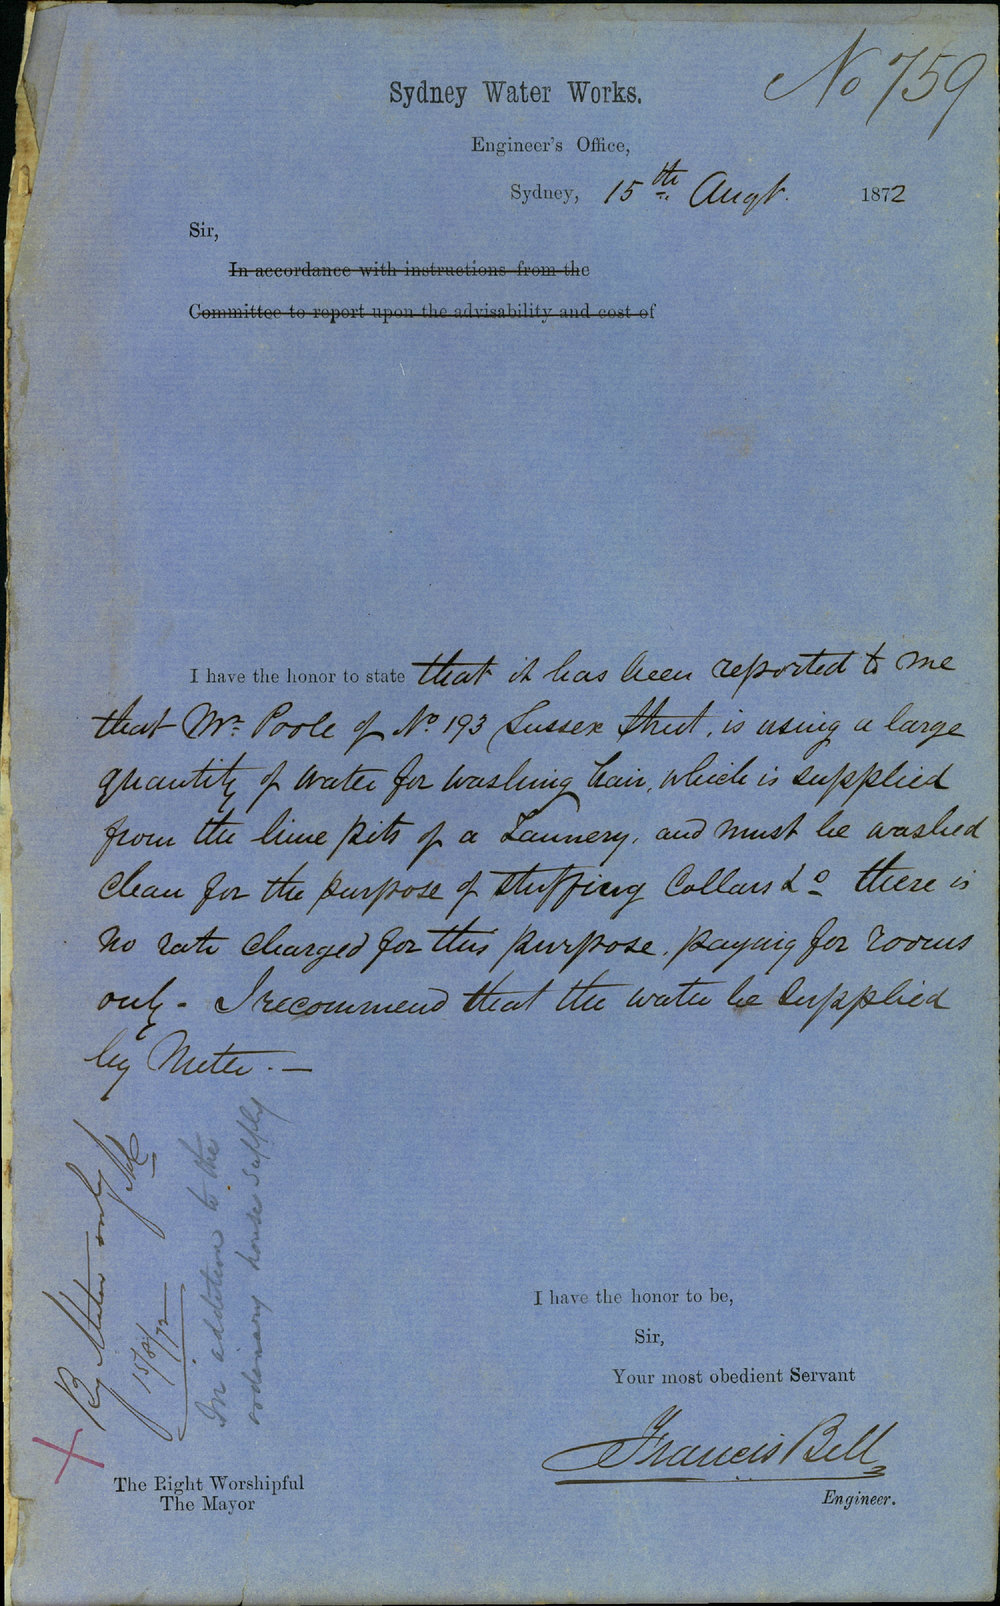 No 759
Sydney Water Works.
Engineer's Office,
Sydney, 15th Augt. 1872
Sir,
In accordance with instructions from the
Committee to report upon the advisability and cost of
I have the honor to state that it has been reported to me
that Mr. Poole of No. 193 Sussex Street, is using a large
quantity of water for washing hair, which is supplied
from the lime pits of a Tannery, and must be washed
clean for the purpose of stuffing Collars &c there is
no rate charged for this purpose, paying for rooms
only - I recommend that the water be supplied
by Meter. —
By Meter only
15/8/72
In addition to the
ordinary house supply
I have the honor to be,
Sir,
Your most obedient Servant
Francis Bell
Engineer.
The Right Worshipful
The Mayor